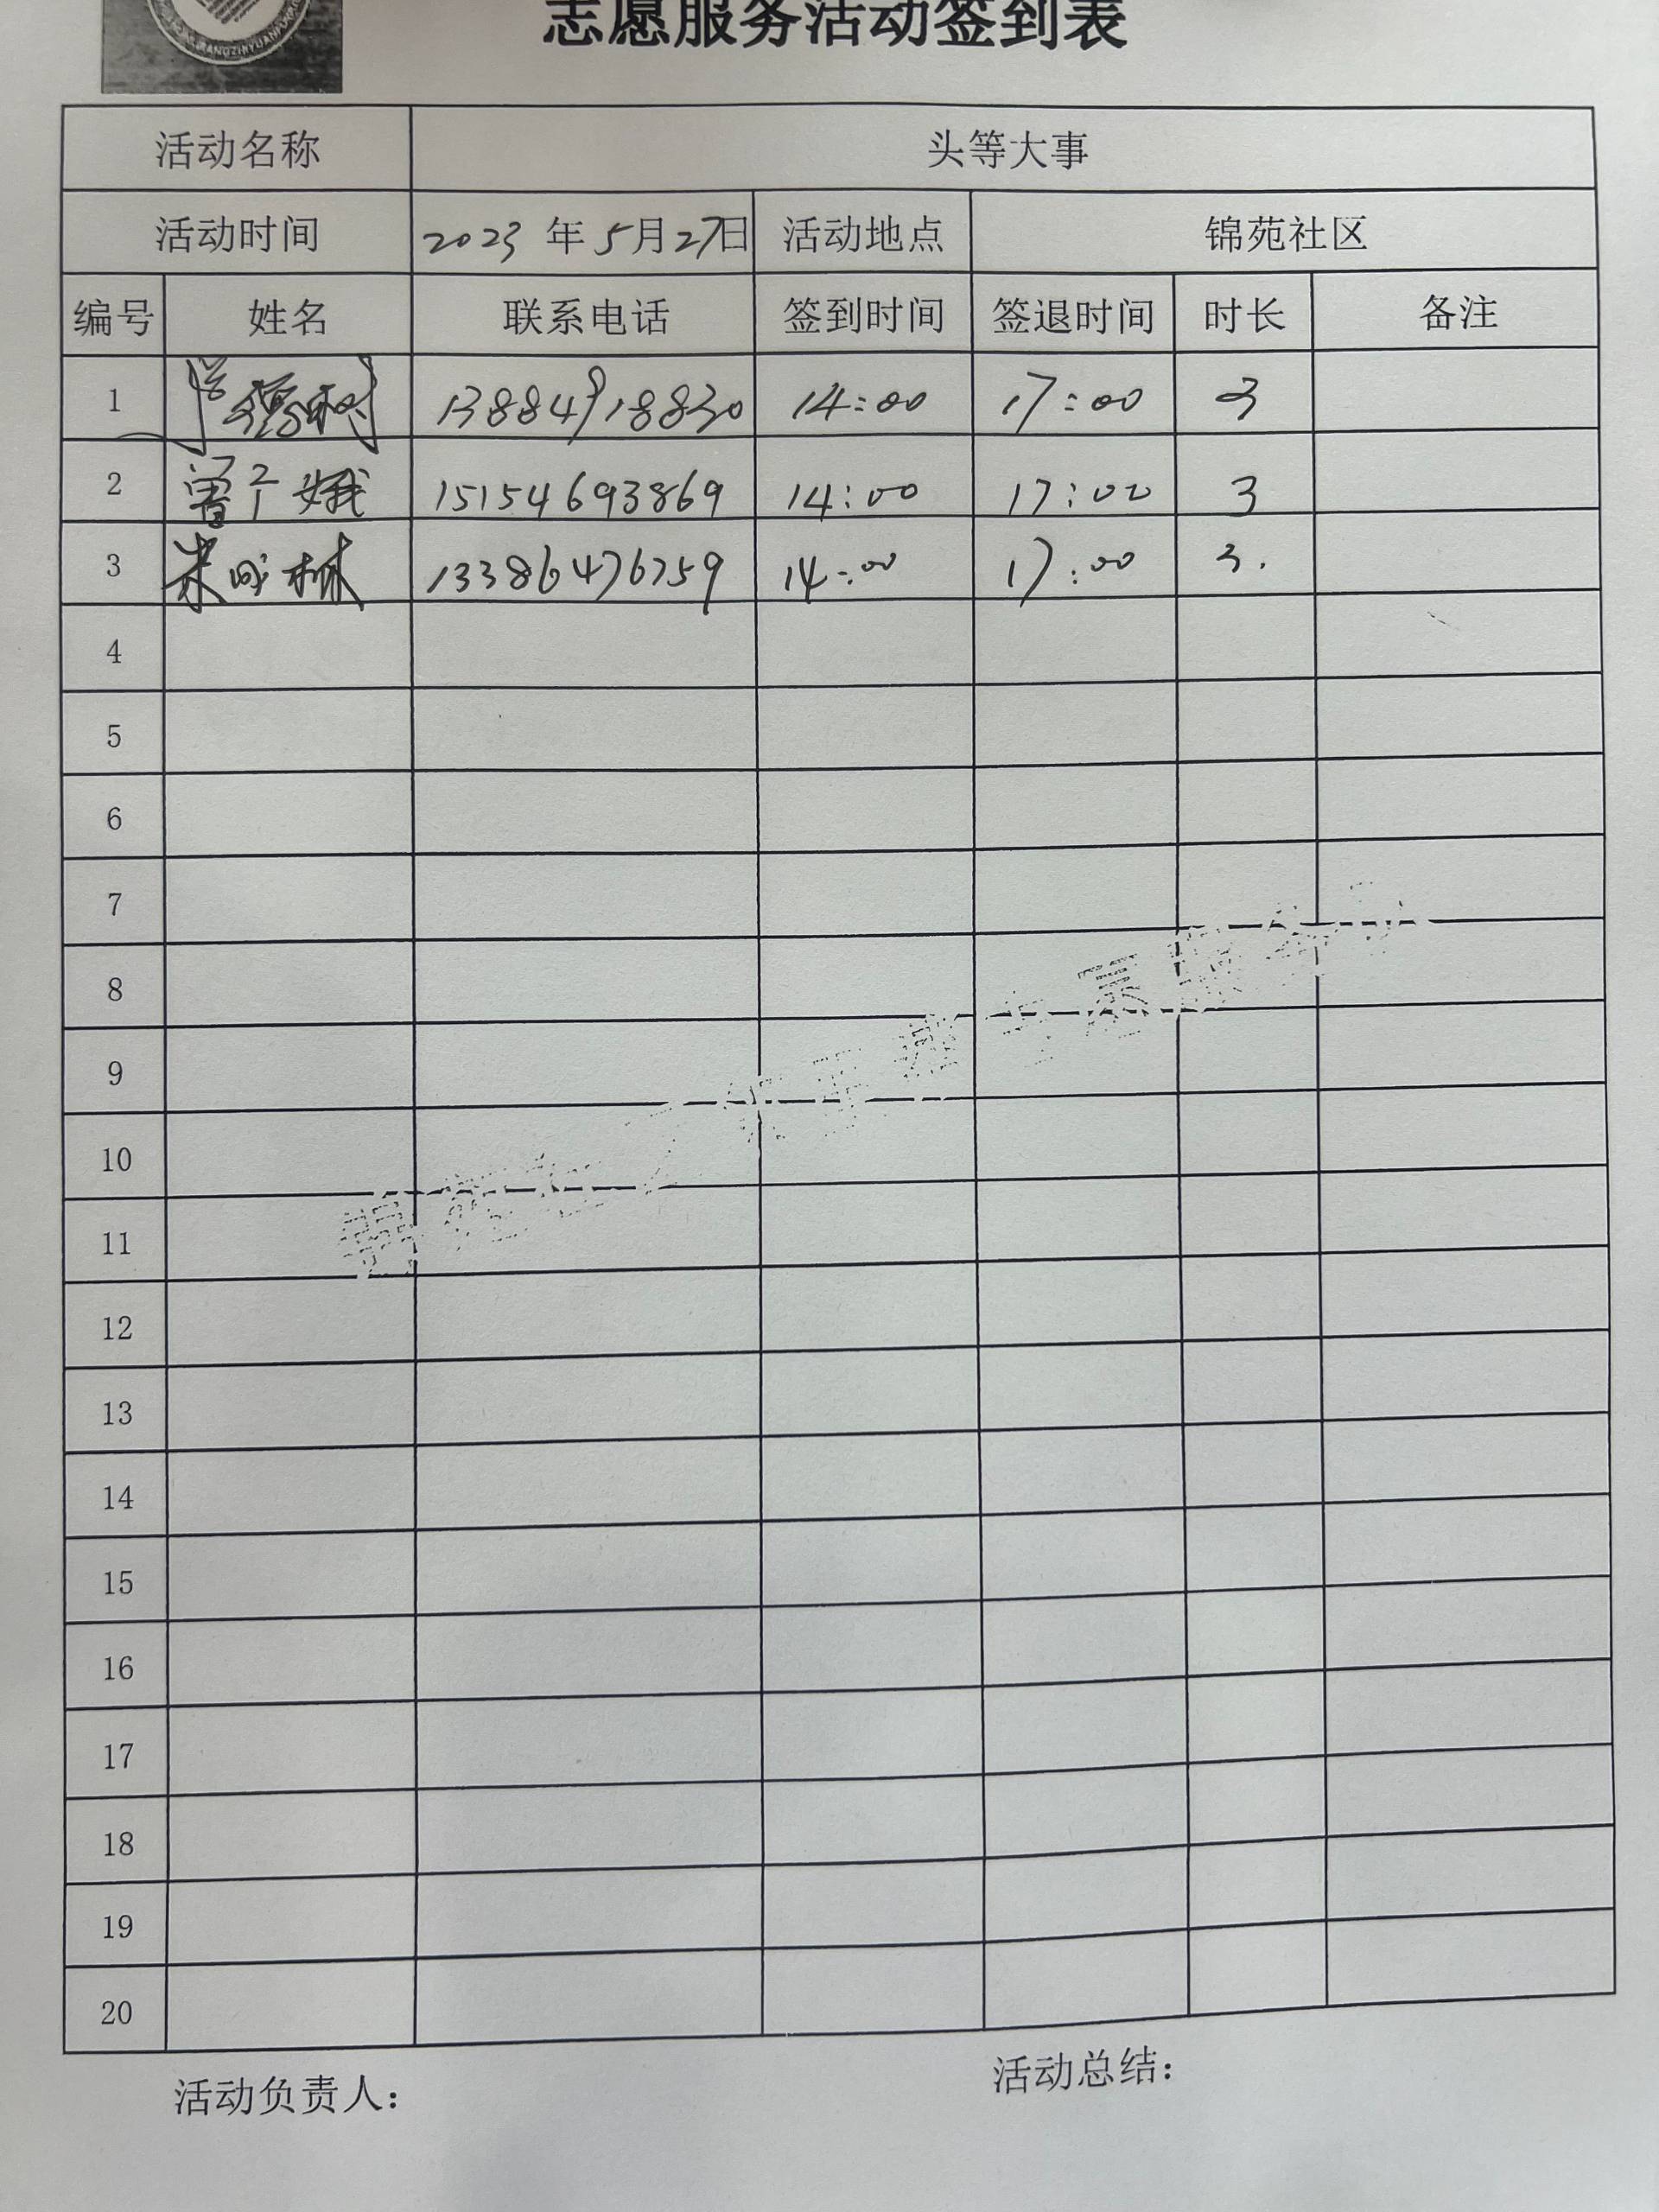 志愿服务活动签到表
活动名称 头等大事
活动时间 2023 年 5月27日 活动地点 锦苑社区
编号 姓名 联系电话 签到时间 签退时间 时长 备注
1 13884918830 14:00 17:00 3
2 15154693869 14:00 17:00 3
3 13386476759 14:00 17:00 3.
4
5
6
7
8
9
10
11
12
13
14
15
16
17
18
19
20
活动负责人: 活动总结: